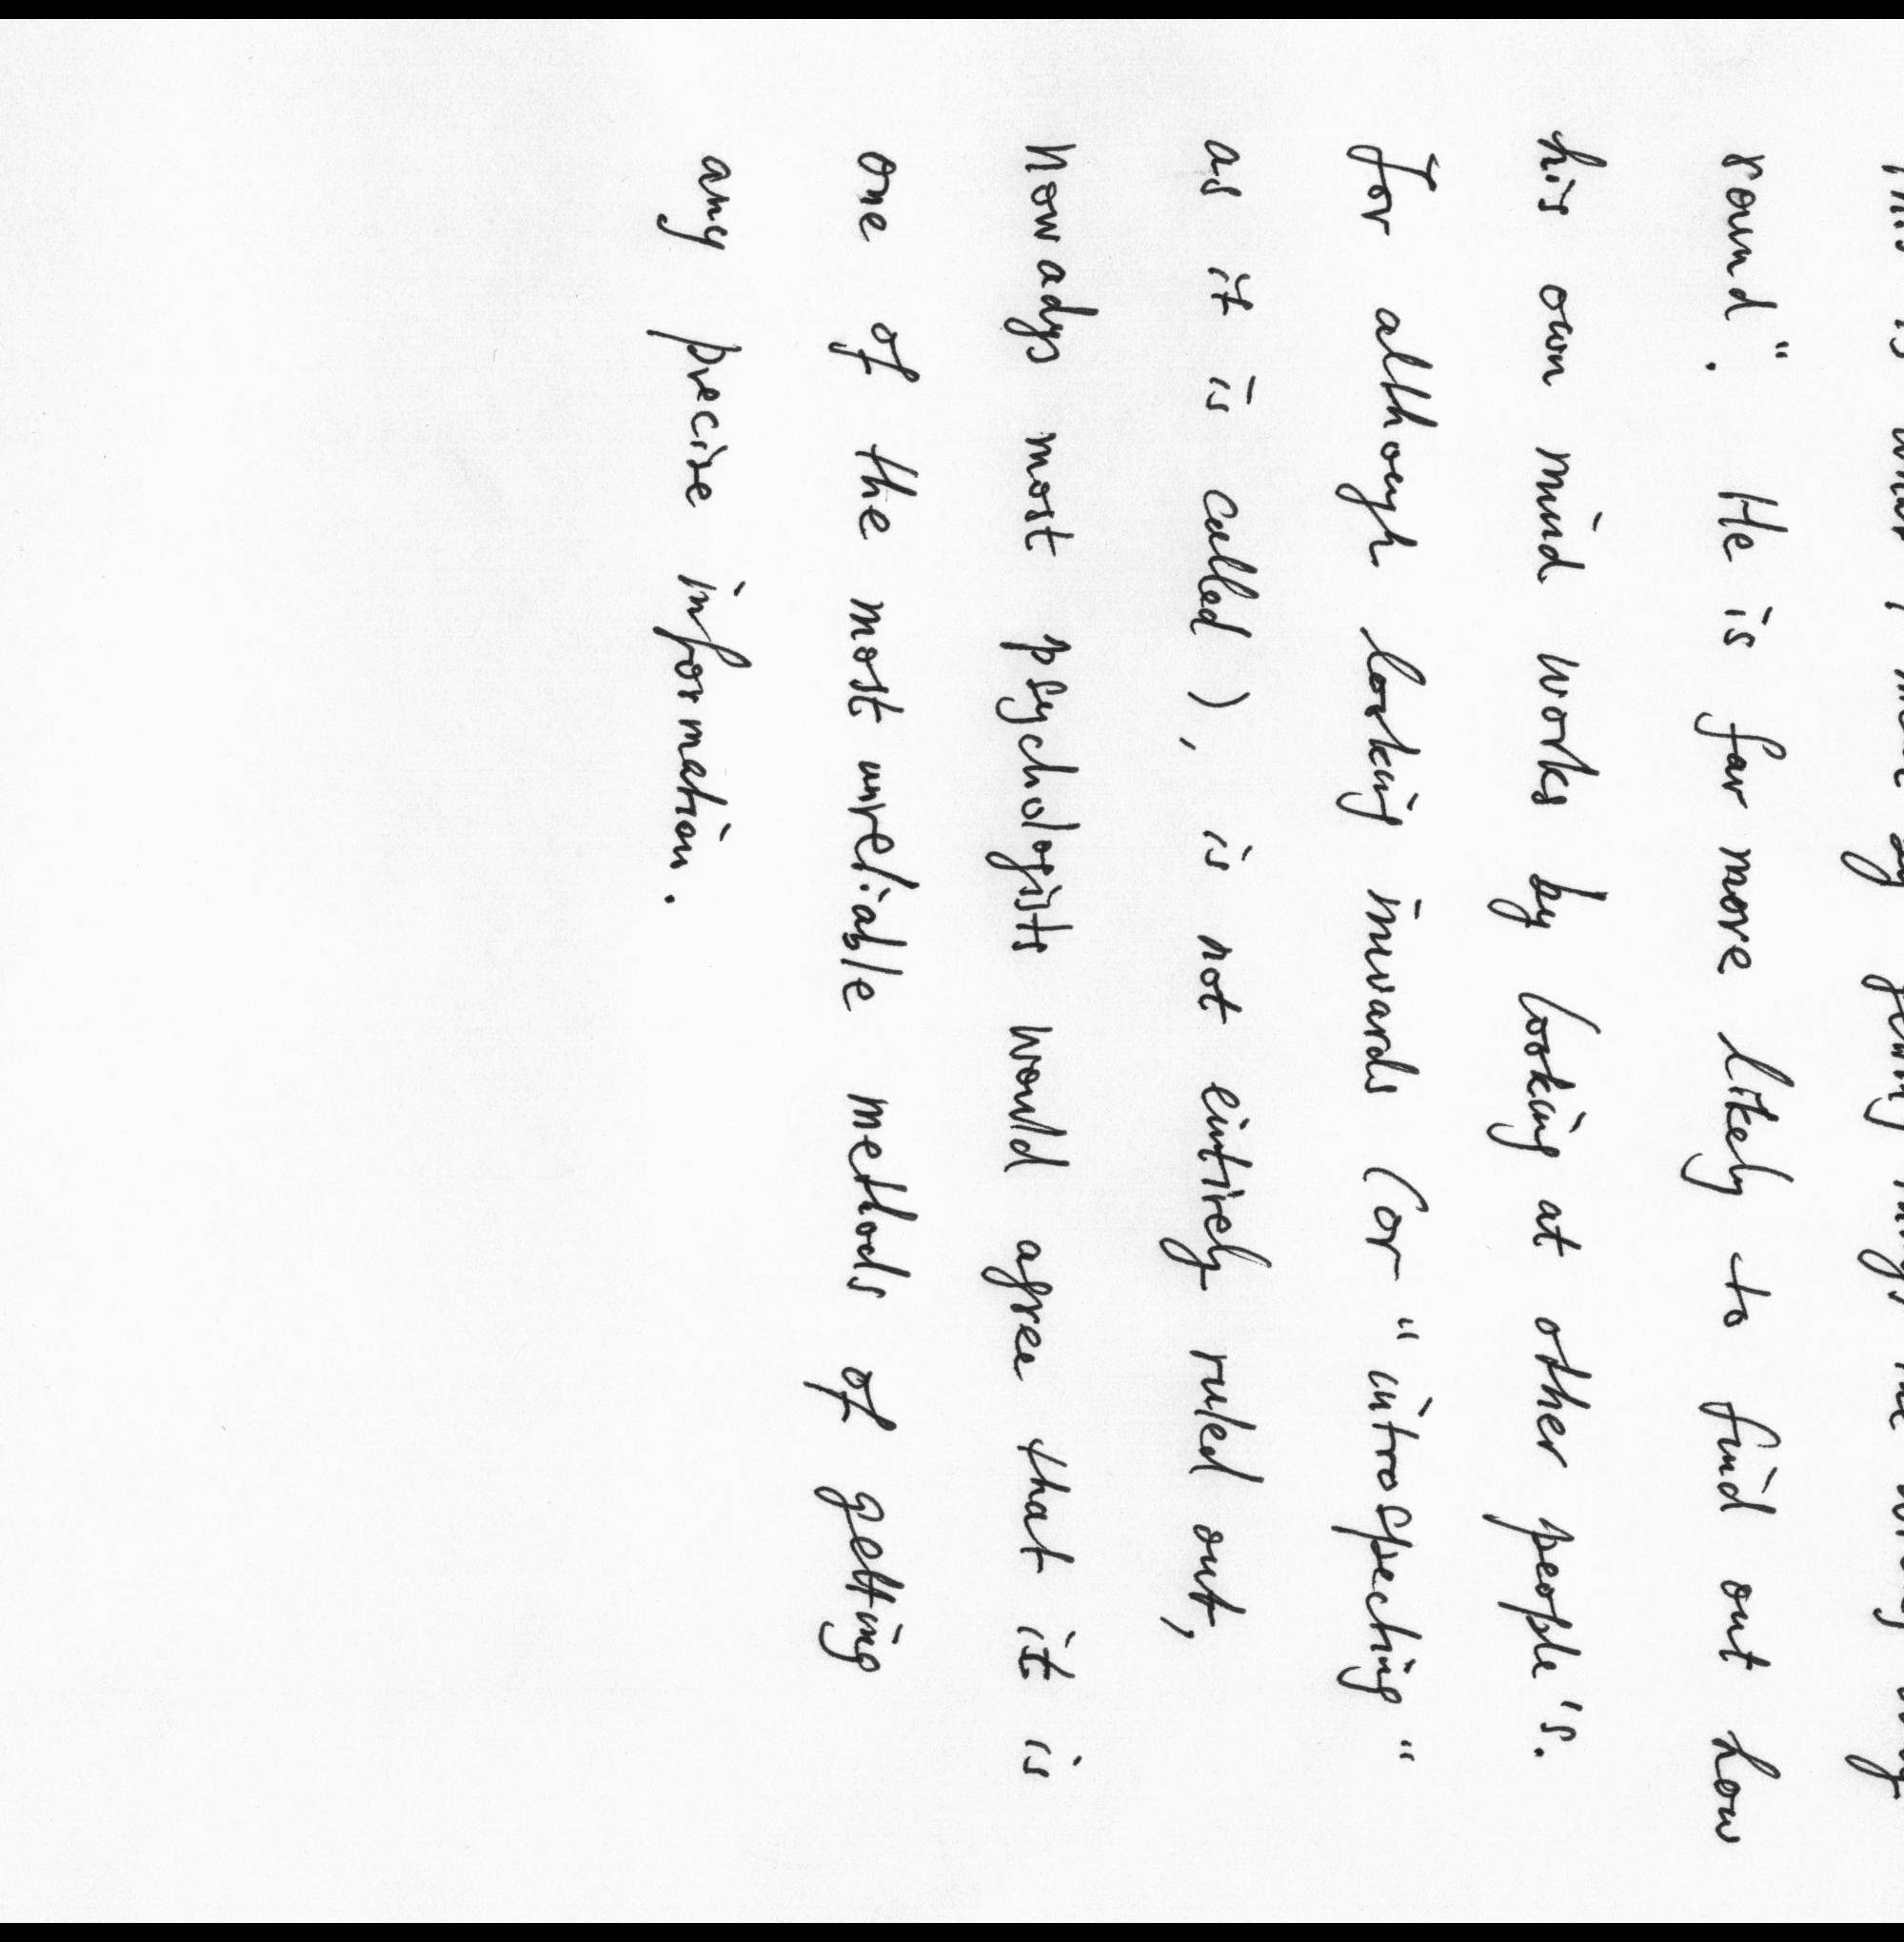 This is what I mean by getting things the wrong way
round". He is far more likely to find out how
his own mind works by looking at other people's.
For although looking inwards (or "introspecting"
as it is called), is not entirely ruled out,
nowadys most psychologists would agree that it is
one of the most unreliable methods of getting
any precise information.